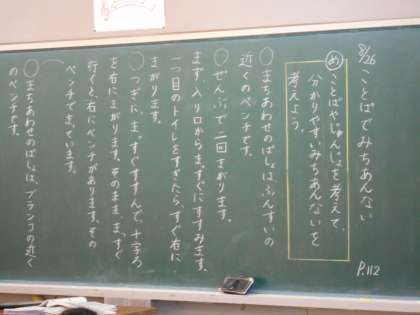 8/26 ことばでみちあんない
P.112
め ことばやじゅんじょを考えて、
分かりやすいみちあんないを
考えよう。
○まちあわせのばしょは、ふんすいの
近くのベンチです。
○ぜんぶで二回まがります。
まず、入り口からまっすぐにすすみます。
一つ目のトイレをすぎたら、すぐ右に
まがります。
○つぎに、まっすぐすすんで、十字ろ
を右にまがります。そのまま、まっすぐ
行くと、右にベンチがあります。その
ベンチでまっています。
○まちあわせのばしょは、ブランコの近く
のベンチです。